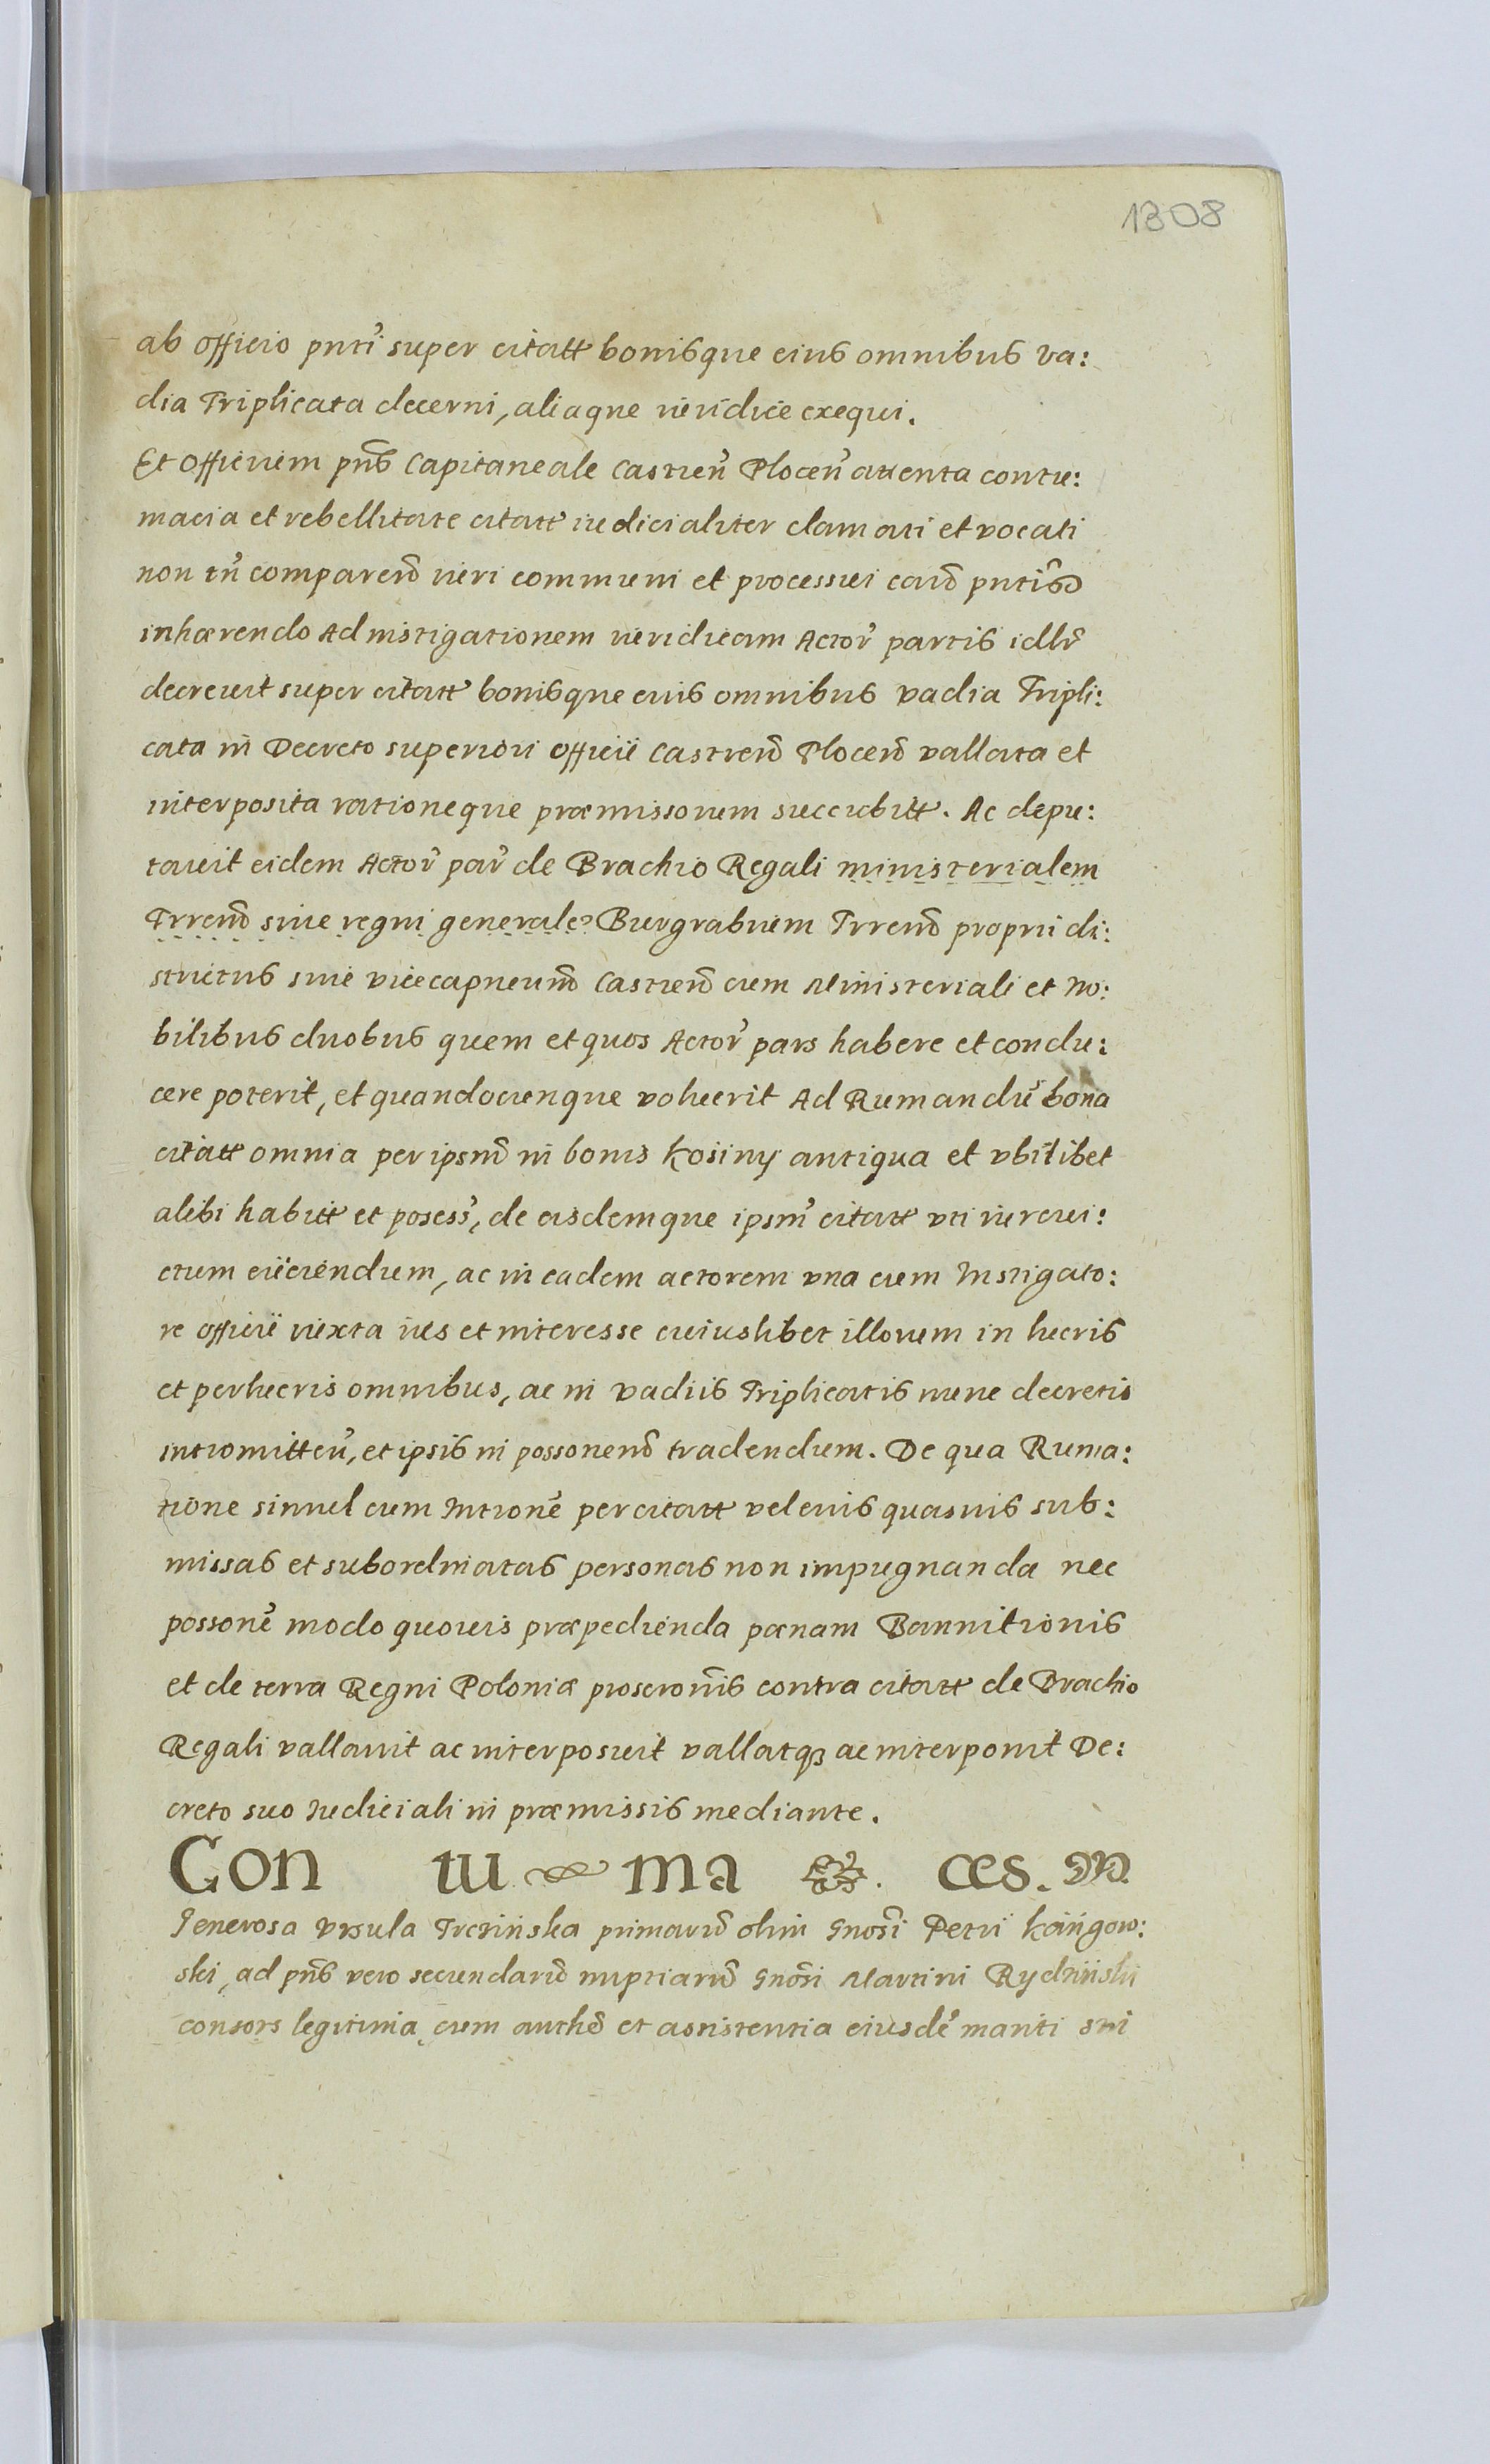 1308
ab officio pnti super citatt bonisque eius omnibus va:
dia Triplicata decerni, aliaque iuridice exequi.
Et Officium pns Capitaneale Castren Plocen attenta contu:
macia et rebellitate citatt iudicialiter clamati et vocati
non tn comparen iuri communi et processui eard
inhærendo Ad instigationem iuridicam Actor partis illr
decreuit super citatt bonisque eius omnibus vadia Tripli:
cata in Decreto superiori officii Castren Plocen vallata et
interposita rationeque præmissorum succubitt. Ac depu:
tauit eidem Actor par de Brachio Regali ministerialem
Trren siue regni generale Burgrabium Trren proprii di:
strictus siue vicecapneum Castren cum Ministeriali et No:
bilibus duobus quem et quos Actor pars habere et condu:
cere poterit, et quandocunque voluerit Ad Rumandu bona
citatt omnia per ipsm in bonis Kosiny antiqua et vbilibet
alibi habitt et posess, de eisdemque ipsm citatt vti iureui:
ctum eiiciendum, ac in eadem actorem vna cum Instigato:
re officii iuxta ius et interesse cuiuslibet illorum in lucris
et perlucris omnibus, ac in vadiis Triplicatis nunc decretis
intromitten, et ipsis in possonem tradendum. De qua Ruma:
tione simul cum Introne per citatt vel eius quasuis sub:
missas et subordinatas personas non impugnanda nec
possone modo quouis præpedienda pœnam Bannitionis
et de terra Regni Poloniæ proscronis contra citatt de Brachio
Regali vallauit ac interposuit vallatq3 ac interponit De:
creto suo Iudiciali in præmissis mediante.
Con tu ma ces. M
Generosa Vrsula Trczińska primarum olim Gnosi Petri Kąigow:
ski, ad pns vero secundarum nuptiarum Gnosi Martini Rydziński
consors legitima, cum auth et assistentia eiusde mariti sui